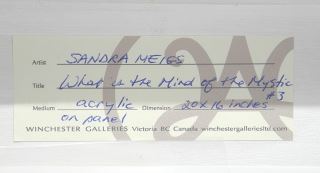 Artist SANDRA MEIGS
Title What is the Mind of the Mystic
#3
Medium acrylic Dimension 20x16 inches
on panel
WINCHESTER GALLERIES Victoria BC Canada winchestergalleriesltd.com